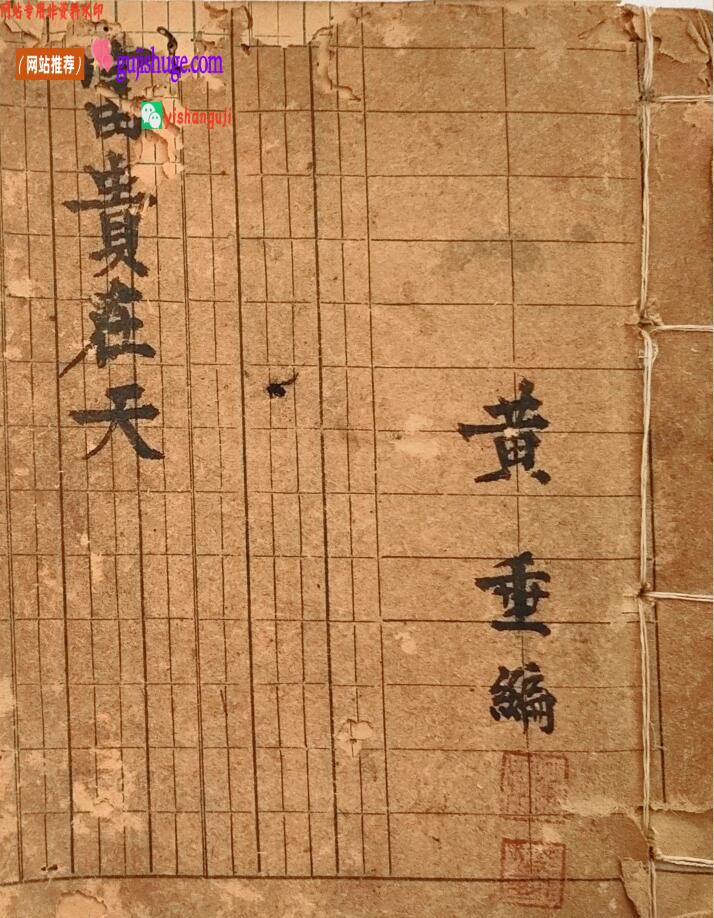 网站专用非资料水印
（网站推荐）
gujishuge.com
yishanguji
黄垂編
富貴在天